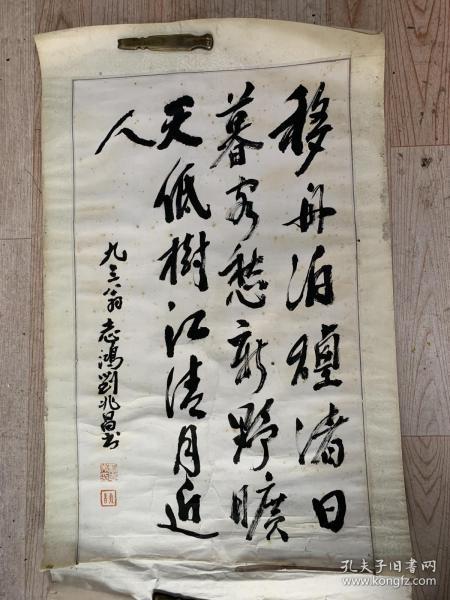 移舟泊煙渚日
暮客愁新野曠
天低樹江清月近
人
九三翁志鴻劉兆昌书
孔夫子旧书网
www.kongfz.com